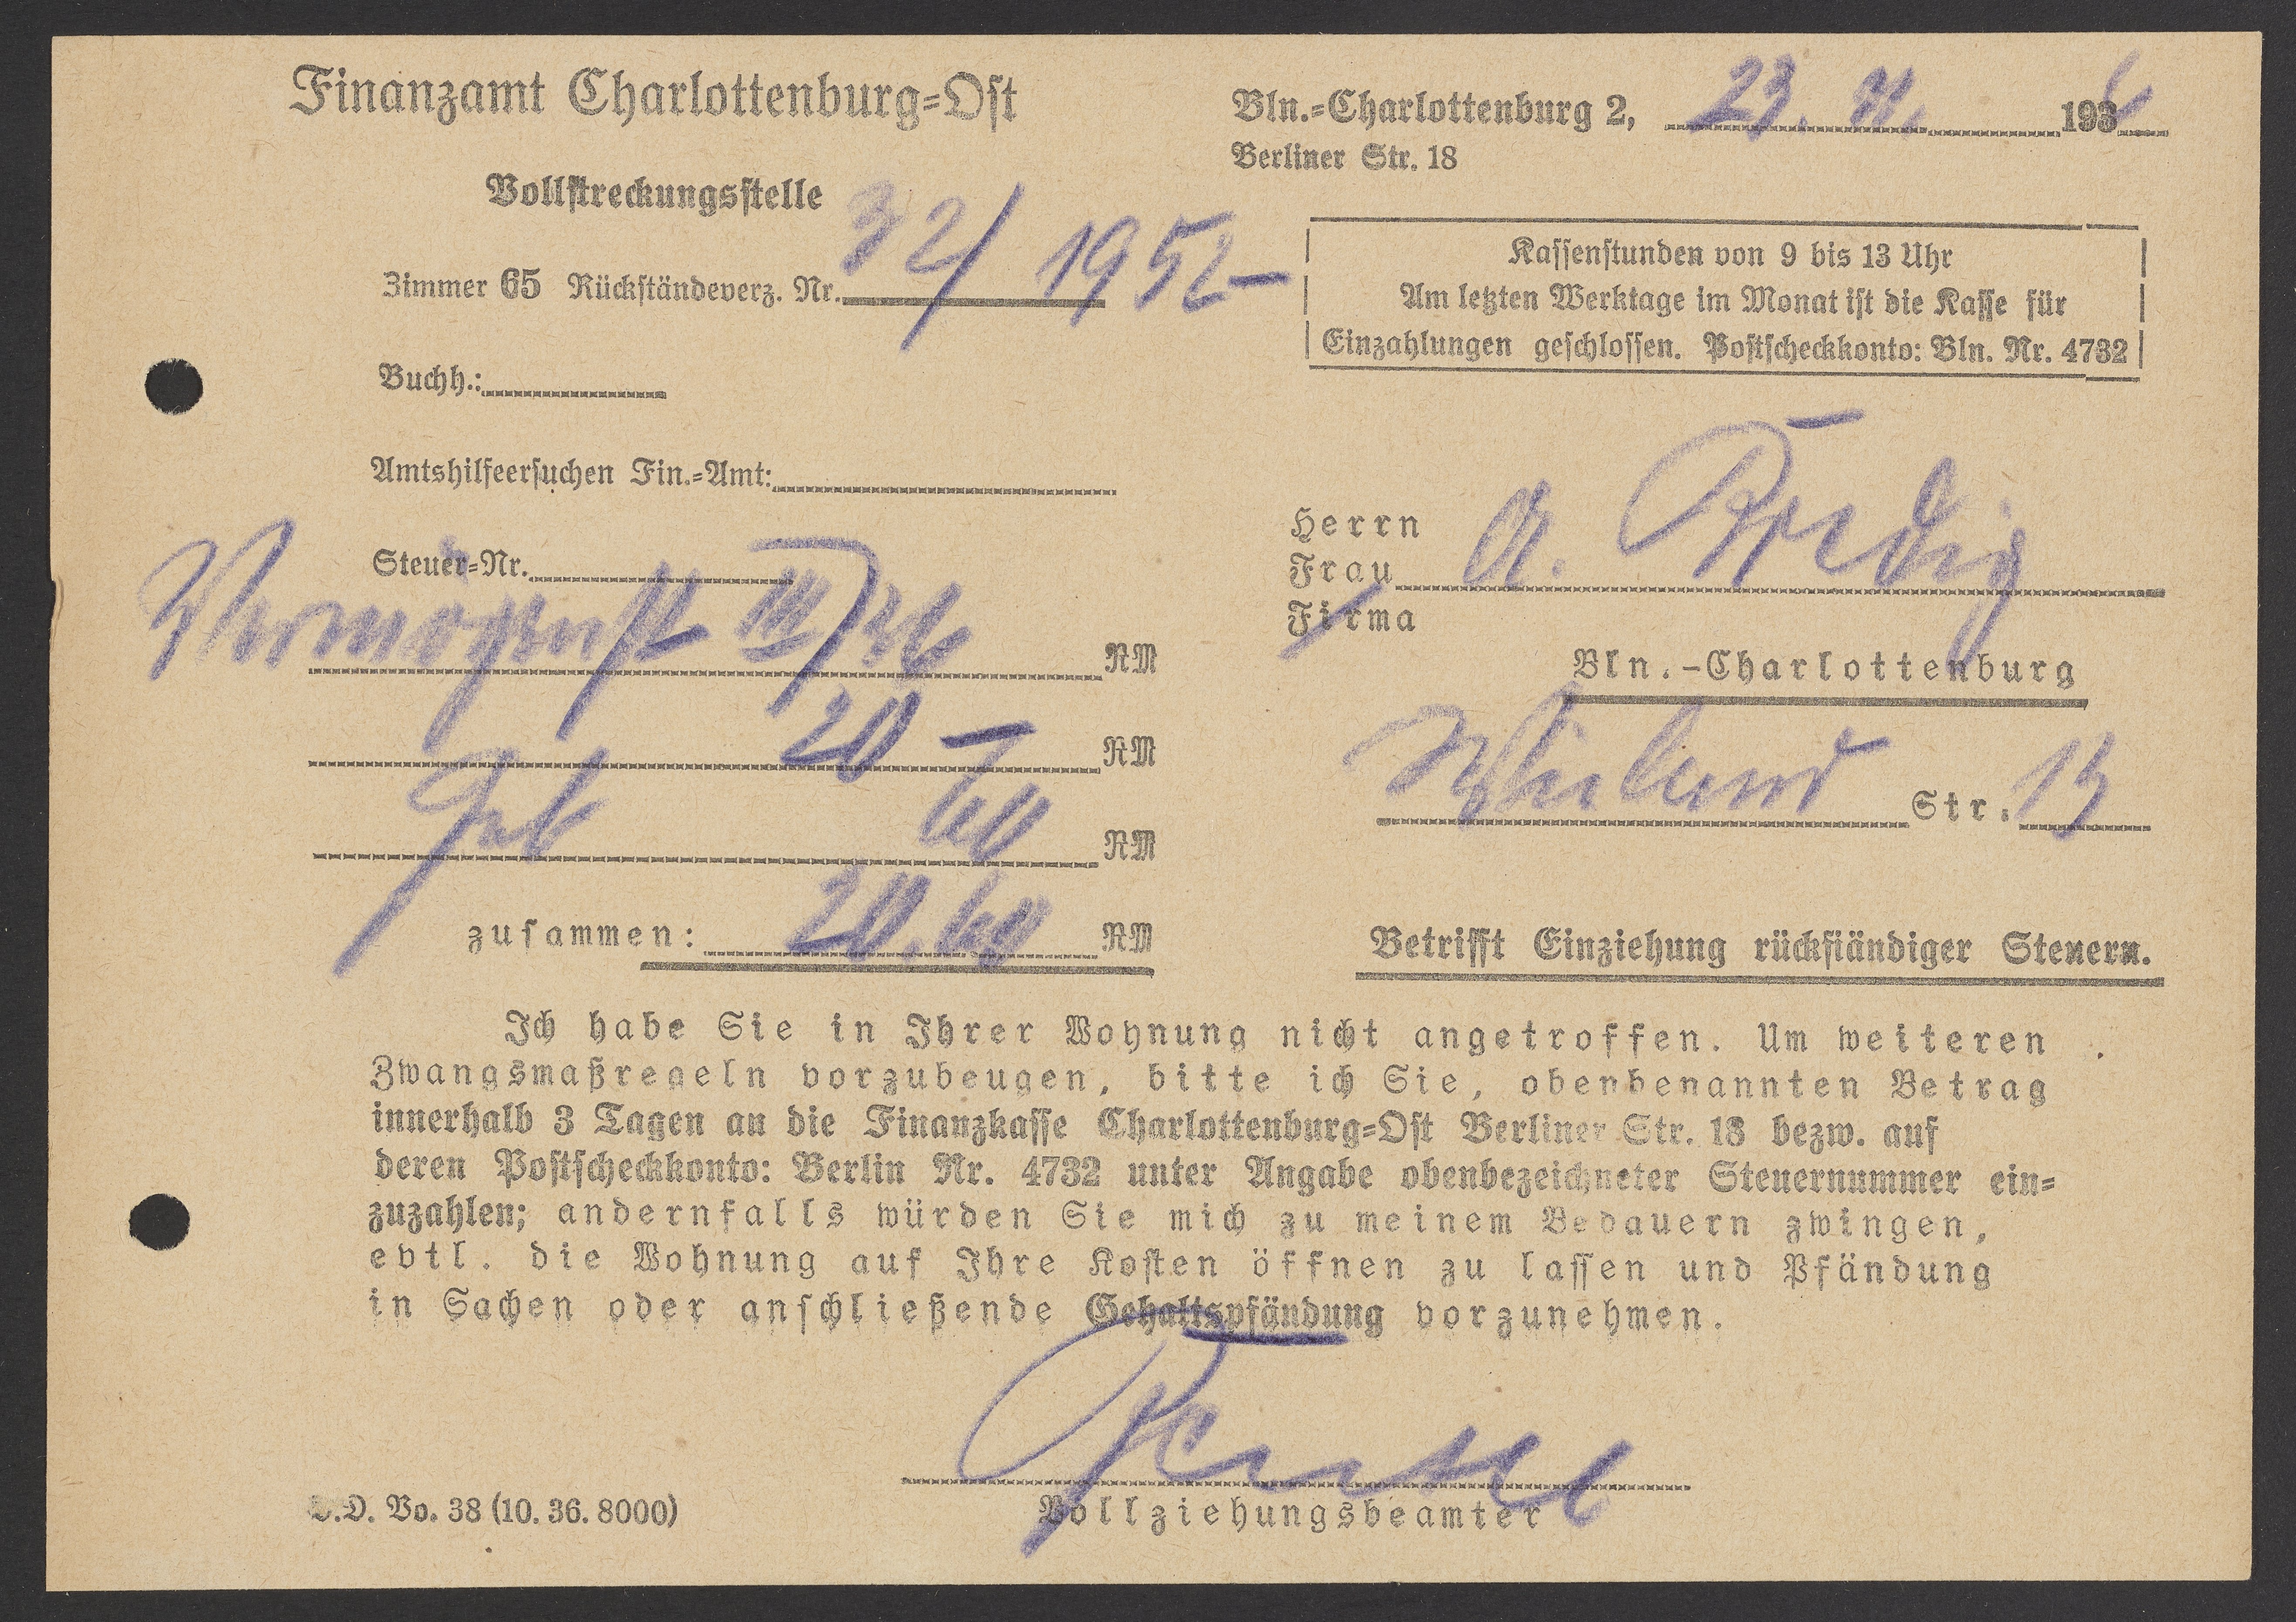 Finanzamt Charlottenburg=Ost
Vollstreckungsstelle
Zimmer 65 Rückständeverz. Nr. 32/1952
Buchh.:
Amtshilfeersuchen Fin.=Amt:
Steuer=Nr.
Vermögenst III/36 RM
20 – RM
Geb 60 RM
zusammen: 20.60 RM
Bln.=Charlottenburg 2, 23. 11. 1936
Berliner Str. 18
Kassenstunden von 9 bis 13 Uhr
Am letzten Werktage im Monat ist die Kasse für
Einzahlungen geschlossen. Postscheckkonto: Bln. Nr. 4732
Herrn
Frau A.
Firma
Bln.-Charlottenburg
Wieland Str. 13
Betrifft Einziehung rückständiger Steuern.
Ich habe Sie in Ihrer Wohnung nicht angetroffen. Um weiteren
Zwangsmaßregeln vorzubeugen, bitte ich Sie, obenbenannten Betrag
innerhalb 3 Tagen an die Finanzkasse Charlottenburg=Ost Berliner Str. 18 bezw. auf
deren Postscheckkonto: Berlin Nr. 4732 unter Angabe obenbezeichneter Steuernummer ein=
zuzahlen; andernfalls würden Sie mich zu meinem Bedauern zwingen,
evtl. die Wohnung auf Ihre Kosten öffnen zu lassen und Pfändung
in Sachen oder anschließende Gehaltspfändung vorzunehmen.
Vollziehungsbeamter
D. Vo. 38 (10. 36. 8000)